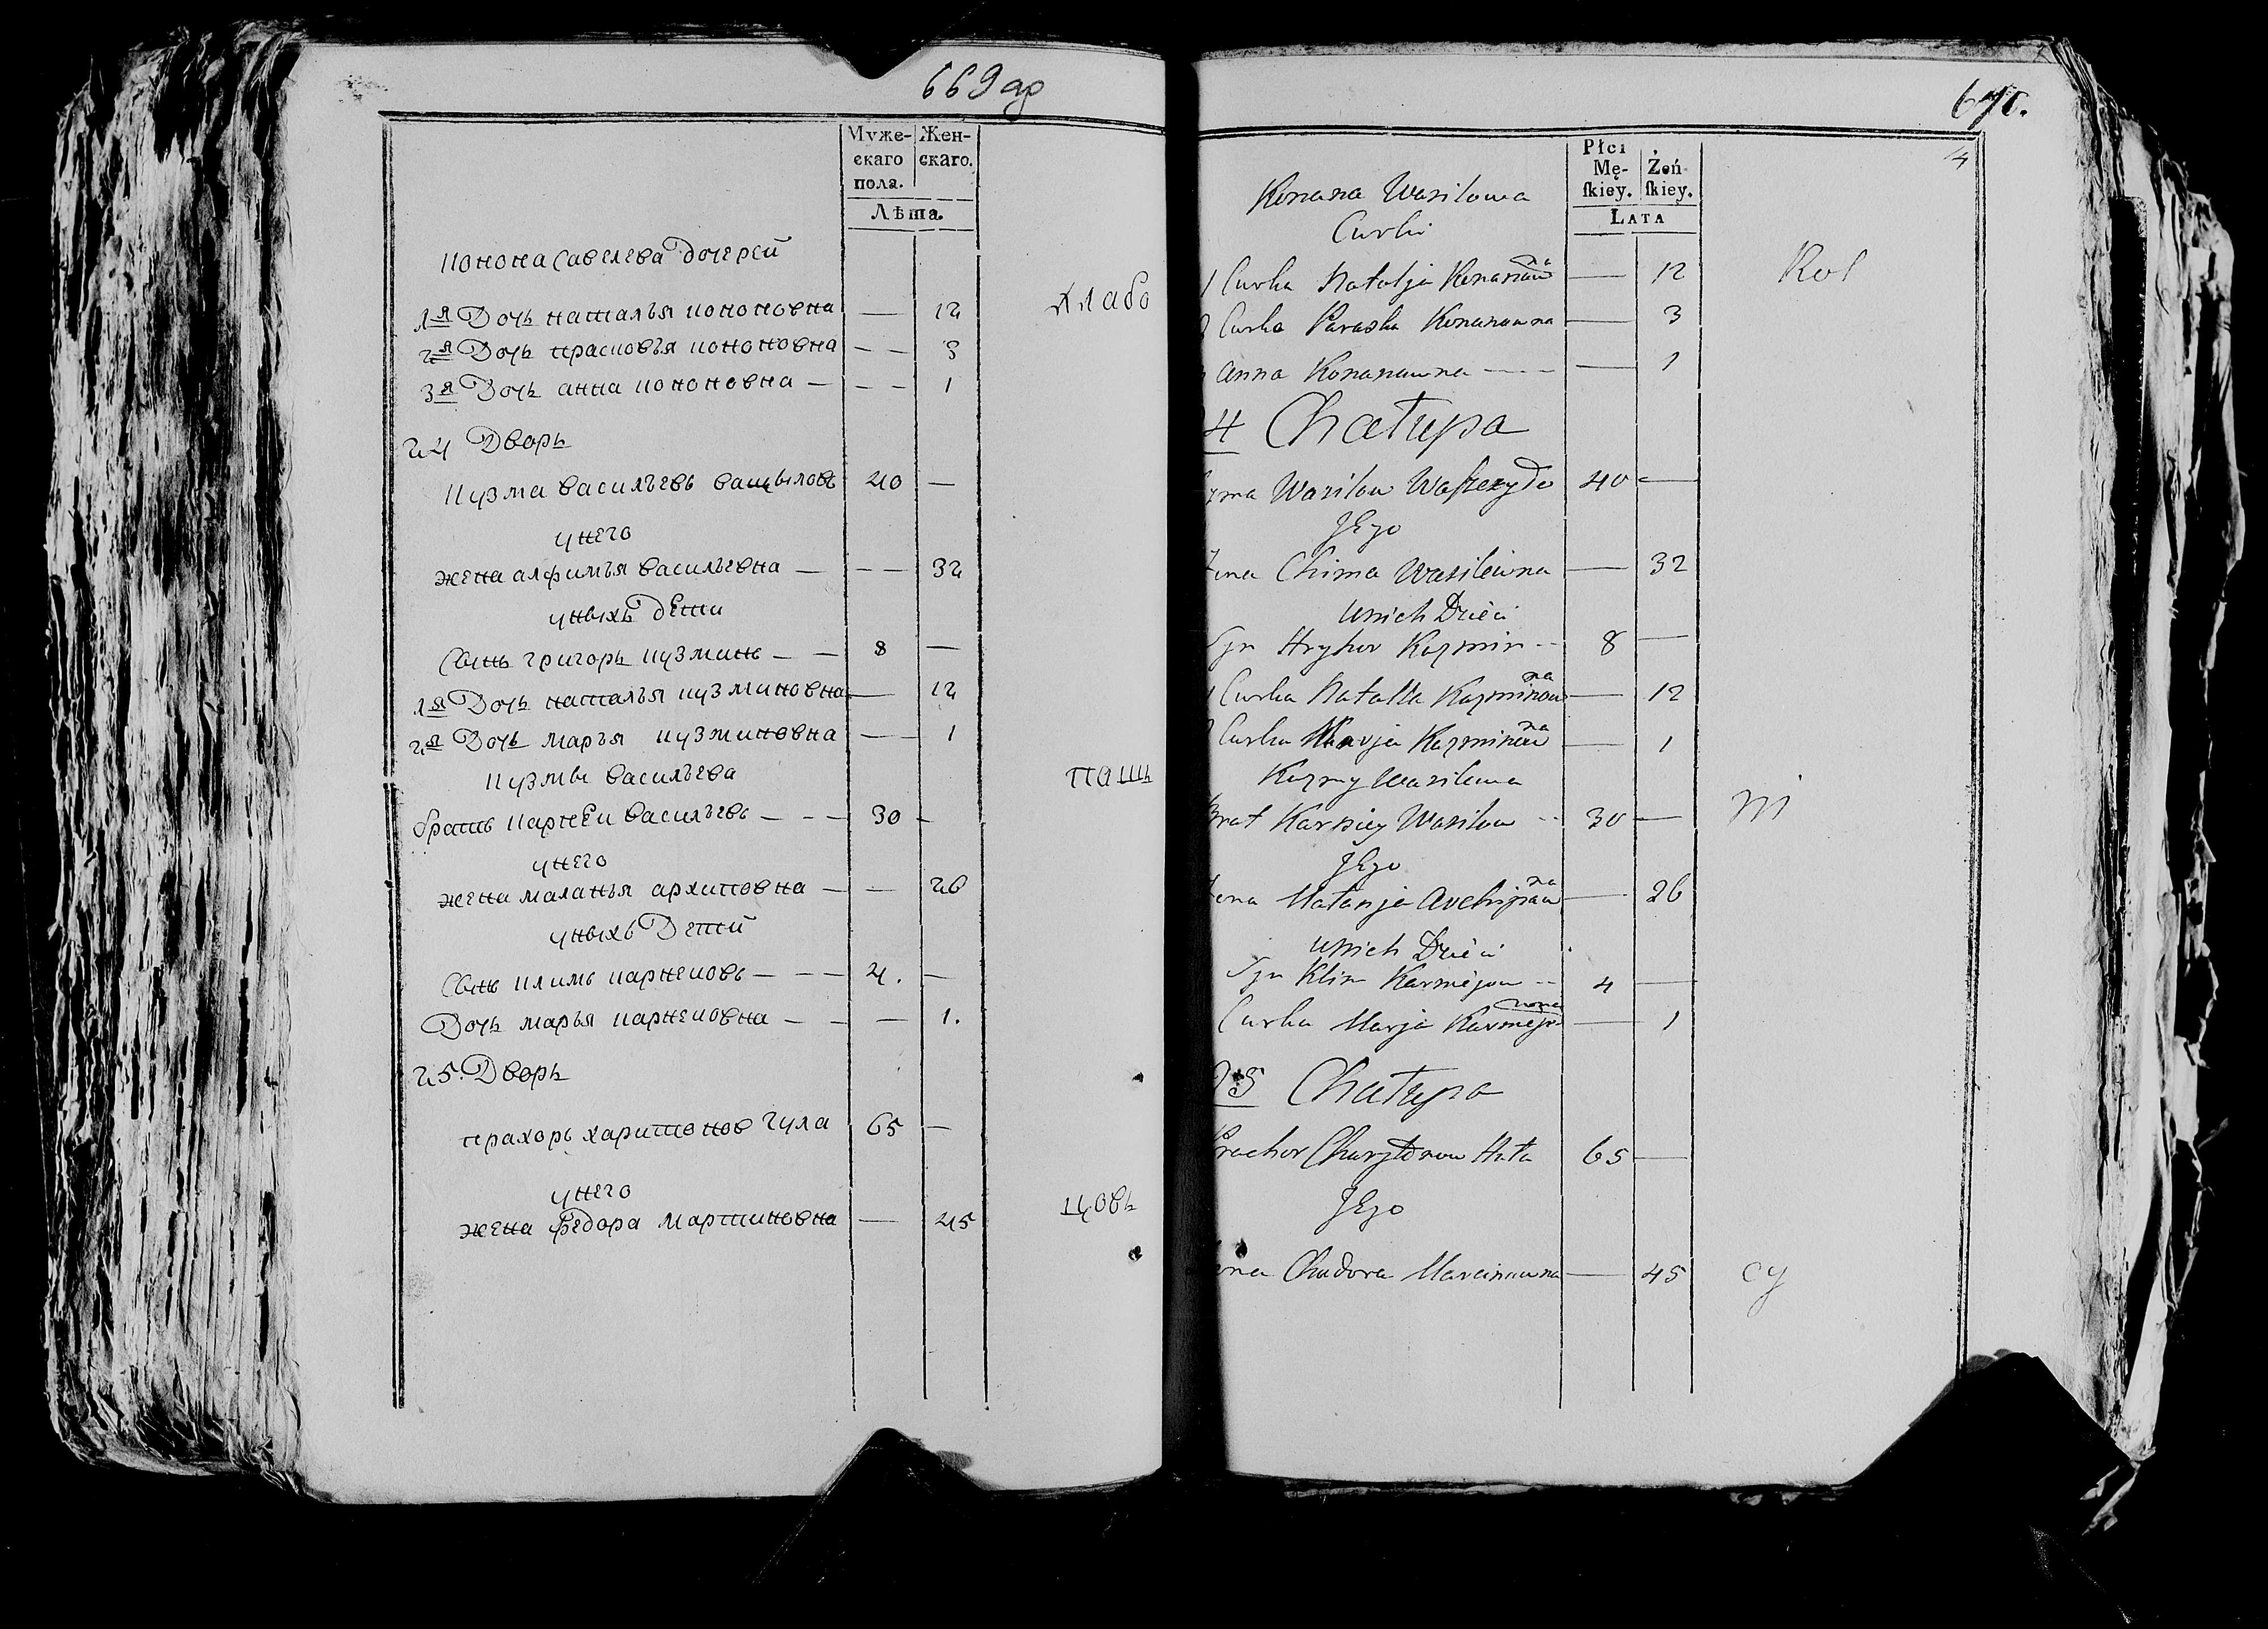 669 ар
Муже-
скаго
пола.
Жен-
скаго.
Лѣта.
Конона Савелева Дочерей
1я Дочь наталья кононовна — 12
2я Дочь прасковья кононовна — — 3
3я Дочь анна кононовна — — — 1
24 Дворъ
Кузма васильевъ 40 —
унего
жена алфимья васильевна — — — 32
уныхъ Дети
Сынъ григоръ кузминъ — — 8 —
1я Дочь наталья кузминовна — 12
2я Дочь марья кузминовна — 1
Кузмы васильева
братъ карнѣи васильевъ — — — 30 —
унего
жена маланья архиповна — — 26
уныхъ Детей
Сынъ климъ карнеиовъ — — — 4. —
Дочь марья карнеиовна — — — 1.
25. Дворъ
прахоръ харитонов гула 65 —
унего
жена Федора мартиновна — 45
лабо
пашъ
цовъ
670.
4
Płci
Mę-
ſkiey.
Żeń-
ſkiey.
Lata
Konana Wasilowa
Curki
1 Curka Natalja Konanowna — 12
Curka Paraska Konanowna — 3
anna Konanowna — — 1
4 Chałupa
Wasilow 40 —
Jego
Chima Wasilewna — 32
Unich Dzieci
Syn Hryhor Kuzmin — 8 —
1 Curka Natalla Kuzminowna — 12
Curka Marja Kuzminowna — 1
Kuzmy Wasilewa
Brat Karniey Wasilow — 30 —
Jego
Małanja Archipowna — 26
Unich Dzieci
Syn Klim Karniejow — 4 —
Curka Marja Karniejowna — 1
25 Chałupa
Prachor Charytonow Huła 65 —
Jego
Chudora Marcinowna — 45
Rol
ni
cy